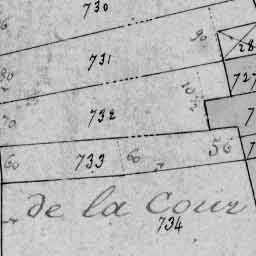 730
90
28
731
727
70
732
60
733
60
56
de la Cour
734